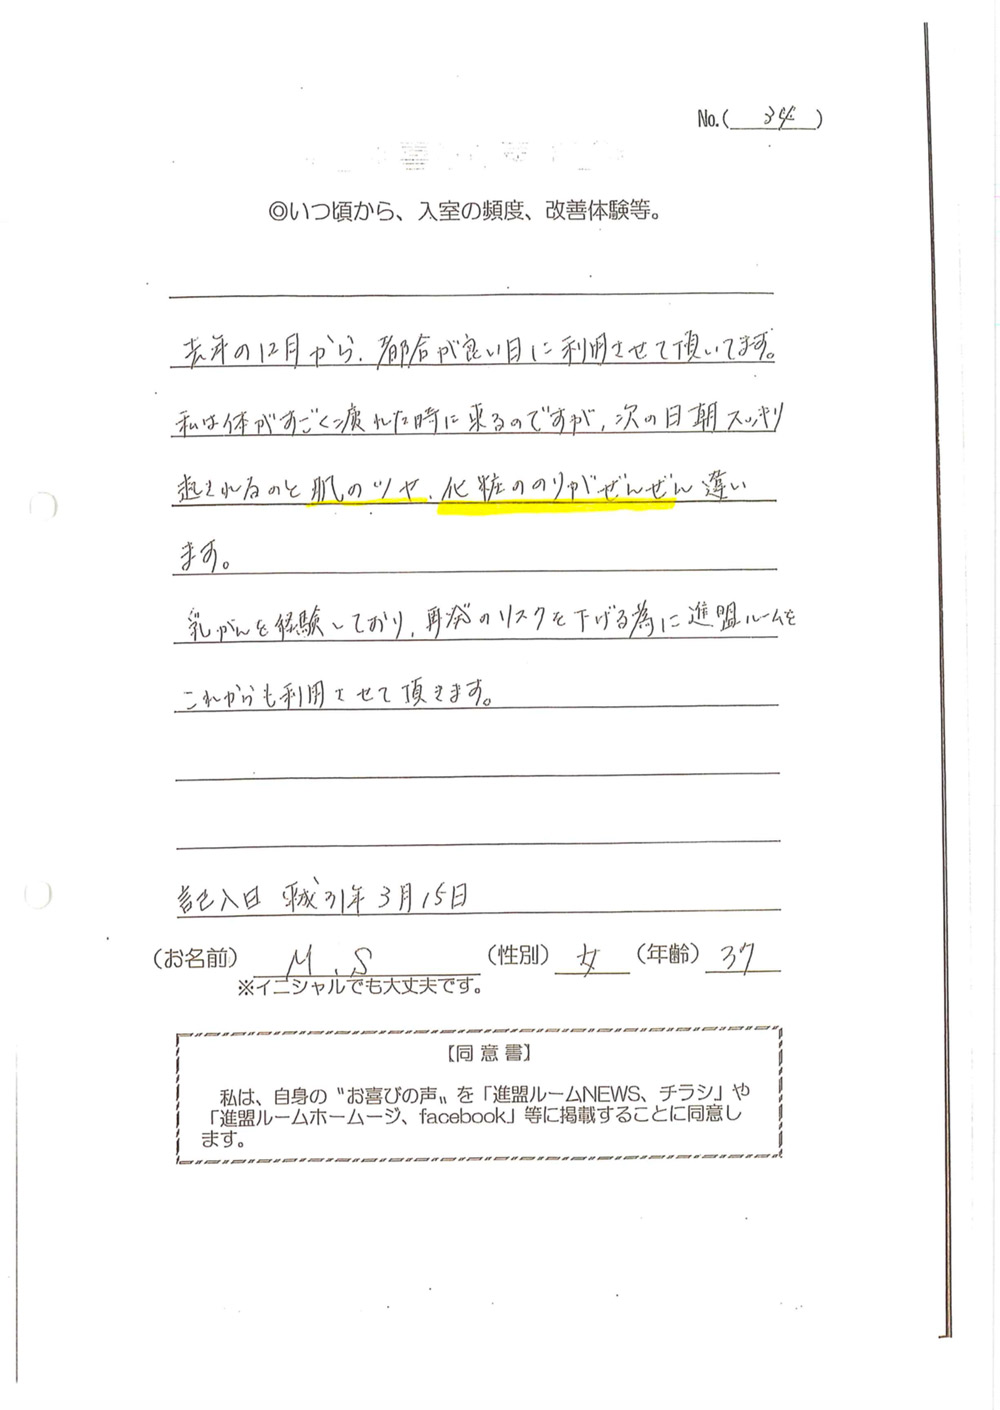 No.(34)
◎いつ頃から、入室の頻度、改善体験等。
去年の12月から、都合が良い日に利用させて頂いてます。
私は体がすごく疲れた時に来るのですが、次の日朝スッキリ
起きれるのと肌のツヤ、化粧ののりがぜんぜん違い
ます。
乳がんを経験しており、再発のリスクを下げる為に進盟ルームを
これからも利用させて頂きます。
記入日 平成31年3月15日
(お名前) M.S (性別) 女 (年齢) 37
※イニシャルでも大丈夫です。
【同意書】
私は、自身の〝お喜びの声〟を「進盟ルームNEWS、チラシ」や
「進盟ルームホームージ、facebook」等に掲載することに同意し
ます。